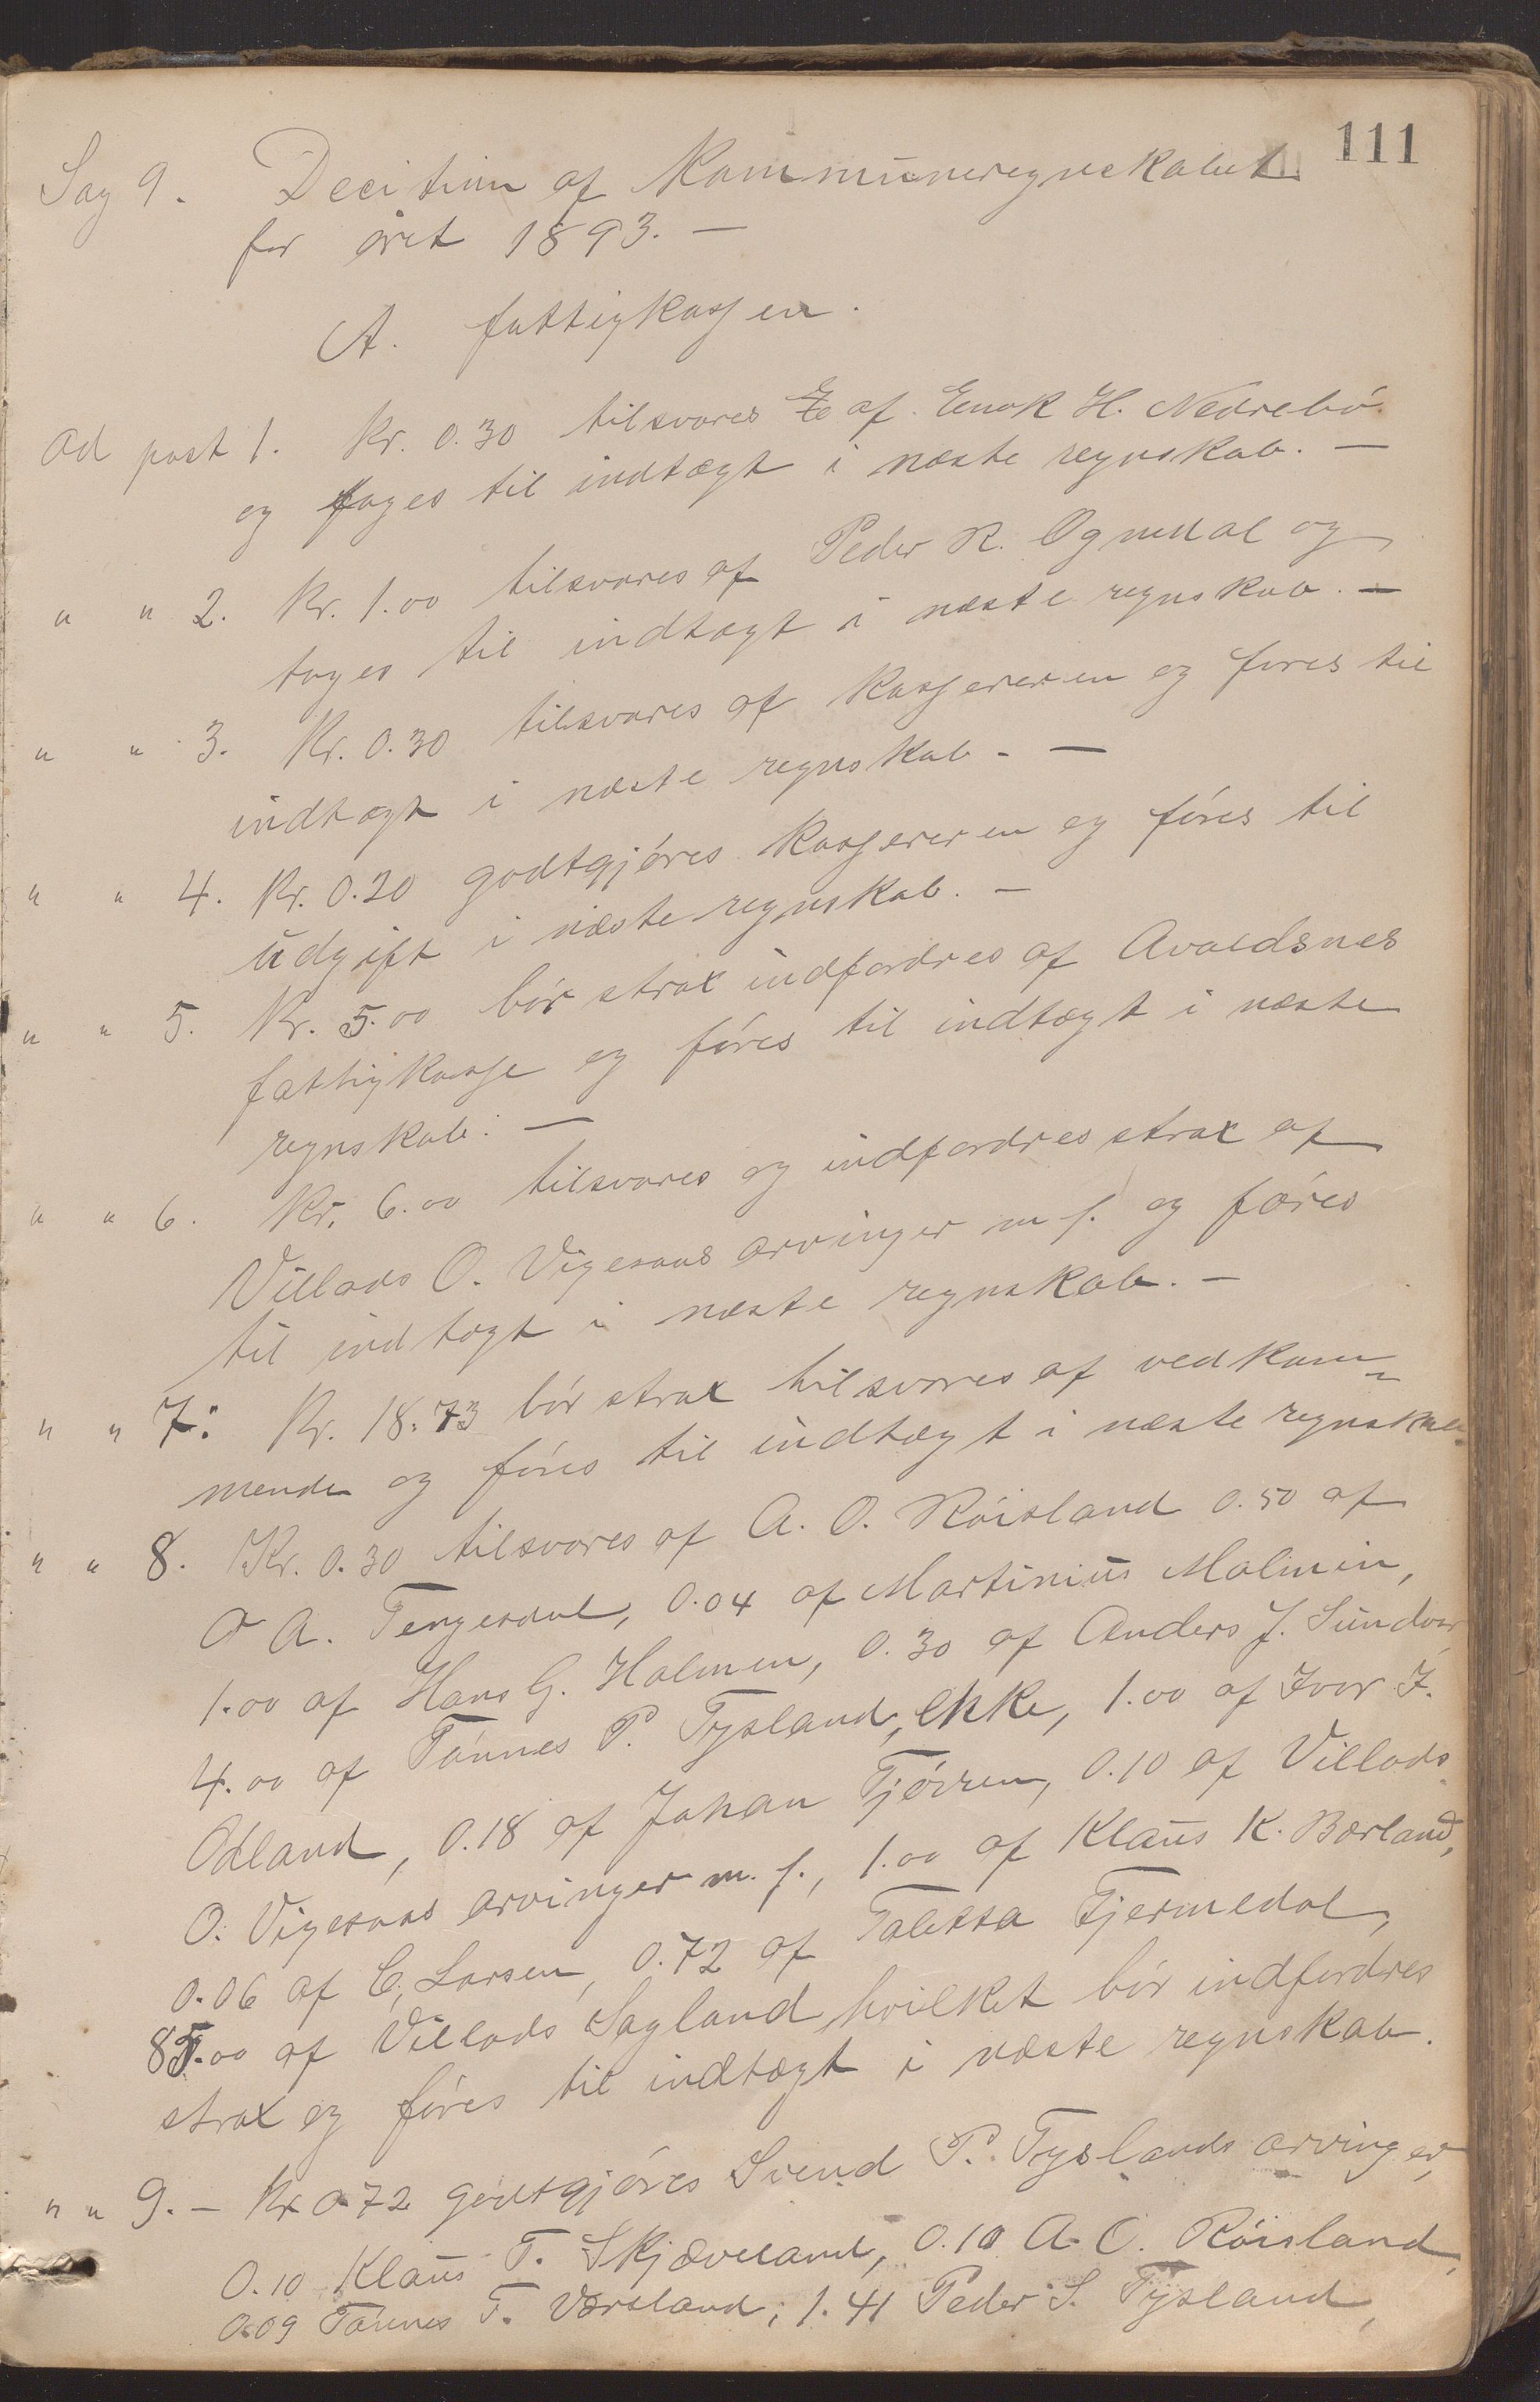 111
Sag 9. Decision af Kommuneregnskabet
for året 1893. —
A. fattigkassen.
Ad post 1. Kr. 0.30 tilsvares af Enok H. Nedrebó
og tages til indtægt i næste regnskab. —
" " 2. Kr. 1.00 tilsvares af Peder R. Ognedal og
tages til indtægt i næste regnskab. —
" " 3. Kr. 0.30 tilsvares af Kassereren og föres til
indtægt i næste regnskab. —
" " 4. Kr. 0.20 godtgjóres Kassereren og fóres til
udgift i næste regnskab. —
" " 5. Kr. 5.00 bór strax indfordres af Avaldsnes
fattigkasse og fóres til indtægt i næste
regnskab. —
" " 6. Kr. 6.00 tilsvares og indfordres strax af
Villads O. Vigesaas arvinger m f. og føres
til indtægt i næste regnskab. —
" " 7: Kr. 18.73 bór strax tilsvares af vedkom-
mende og fóres til indtægt i næste regnskab.
" " 8. Kr. 0.30 tilsvares af A. O. Róisland 0.50 af
O A. Tengesdal, 0.04 af Martinius Malmin,
1.00 af Hans G. Holmen, 0.30 af Anders J. Sundvor,
4.00 af Tónnes P. Tysland, ekke, 1.00 af Ivor I.
Ødland, 0.18 af Johan Tjórren, 0.10 af Villads
O. Vigesaas arvinger m. f., 1.00 af Klaus K. Bærland,
0.06 af C. Larsen, 0.72 af Taletta Fjermedal,
85.00 af Villads Sagland hvilket bór indfordres
strax og fóres til indtægt i næste regnskab.
" " 9. — Kr 0.72 godtgjóres Svend P. Tyslands arvinger,
0.10 Klaus T. Skjæveland, 0.10 A. O. Róisland,
0.09 Tónnes T. Værsland; 1.41 Peder S. Tysland,